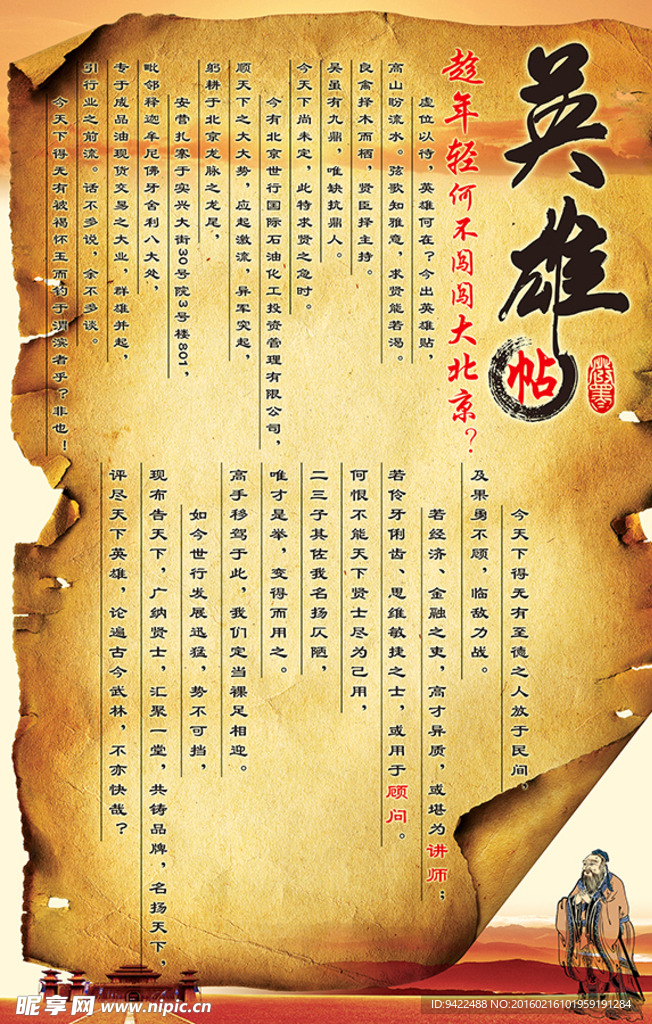 英雄帖
趁年轻何不闯闯大北京？
虚位以待，英雄何在？今出英雄贴，
高山盼流水。弦歌知雅意，求贤能若渴。
良禽择木而栖，贤臣择主持。
吴虽有九鼎，唯缺抗鼎人。
今天下尚未定，此特求贤之急时。
今有北京世行国际石油化工投资管理有限公司，
顺天下之大大势，应起激流，异军突起，
躬耕于北京龙脉之龙尾，
安营扎寨于实兴大街30号院3号楼801，
毗邻释迦牟尼佛牙舍利八大处，
专于成品油现货交易之大业，群雄并起，
引行业之前流。话不多说，余不多谈。
今天下得无有被褐怀玉而钓于渭滨者乎？非也！
今天下得无有至德之人放于民间，
及果勇不顾，临敌力战。
若经济、金融之吏，高才异质，或堪为讲师；
若伶牙俐齿、思维敏捷之士，或用于顾问。
何恨不能天下贤士尽为己用，
二三子其佐我名扬仄陋，
唯才是举，变得而用之。
高手移驾于此，我们定当裸足相迎。
如今世行发展迅猛，势不可挡，
现布告天下，广纳贤士，汇聚一堂，共铸品牌，名扬天下，
评尽天下英雄，论遍古今武林，不亦快哉？
昵享网 www.nipic.cn
ID:9422488 NO:20160216101959191284